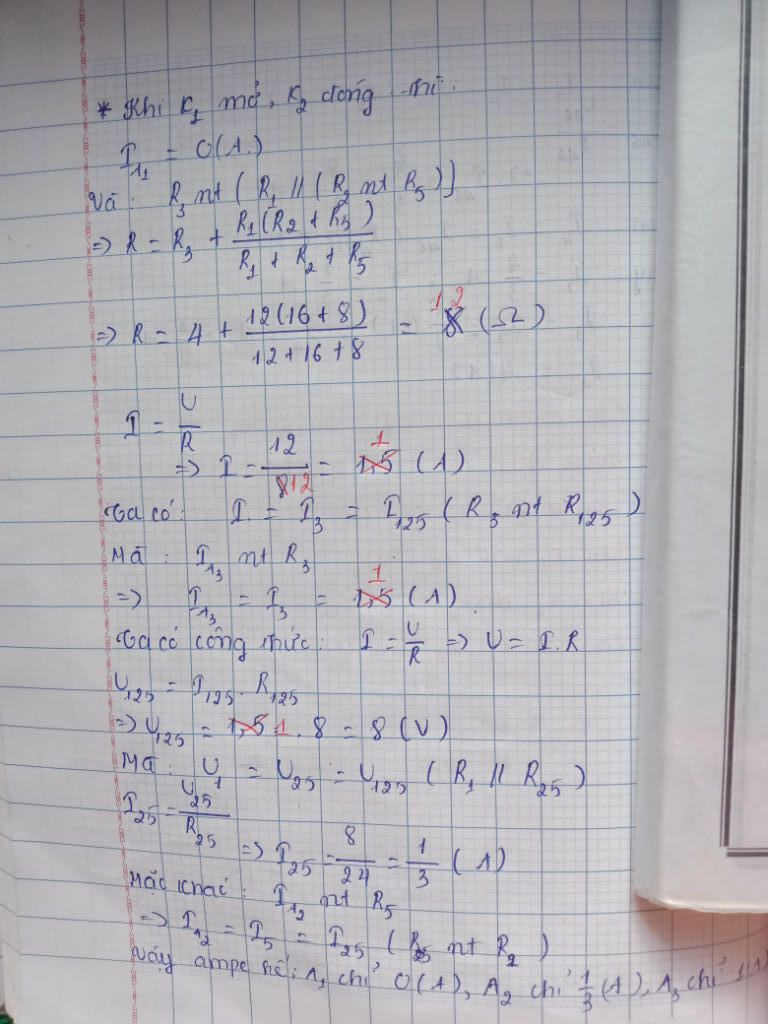 * Khi K₁ mở, K₂ đóng thì:
I_A₁ = 0(A.)
Và: R₃ nt ( R₁ // (R₂ nt R₅)]
=> R = R₃ + R₁(R₂ + R₅) / R₁ + R₂ + R₅
=> R = 4 + 12(16+8) / 12+16+8 = 8 12 (Ω)
I = U/R
=> I = 12 / 8 12 = 1,5 1 (A)
Ta có: I = I₃ = I₁₂₅ ( R₃ nt R₁₂₅ )
Mà: I_A₃ nt R₃
=> I_A₃ = I₃ = 1,5 1 (A)
Ta có công thức: I = U/R => U = I.R
U₁₂₅ = I₁₂₅ . R₁₂₅
=> U₁₂₅ = 1,5 1 . 8 = 8 (V)
Mà: U₁ = U₂₅ = U₁₂₅ ( R₁ // R₂₅ )
I₂₅ = U₂₅ / R₂₅
=> I₂₅ = 8/24 = 1/3 (A)
Mặc khác: I_A₂ nt R₅
=> I_A₂ = I₅ = I₂₅ ( R₅ nt R₂ )
Vậy ampe kế: A₁ chỉ 0(A), A₂ chỉ 1/3 (A), A₃ chỉ 1(A)